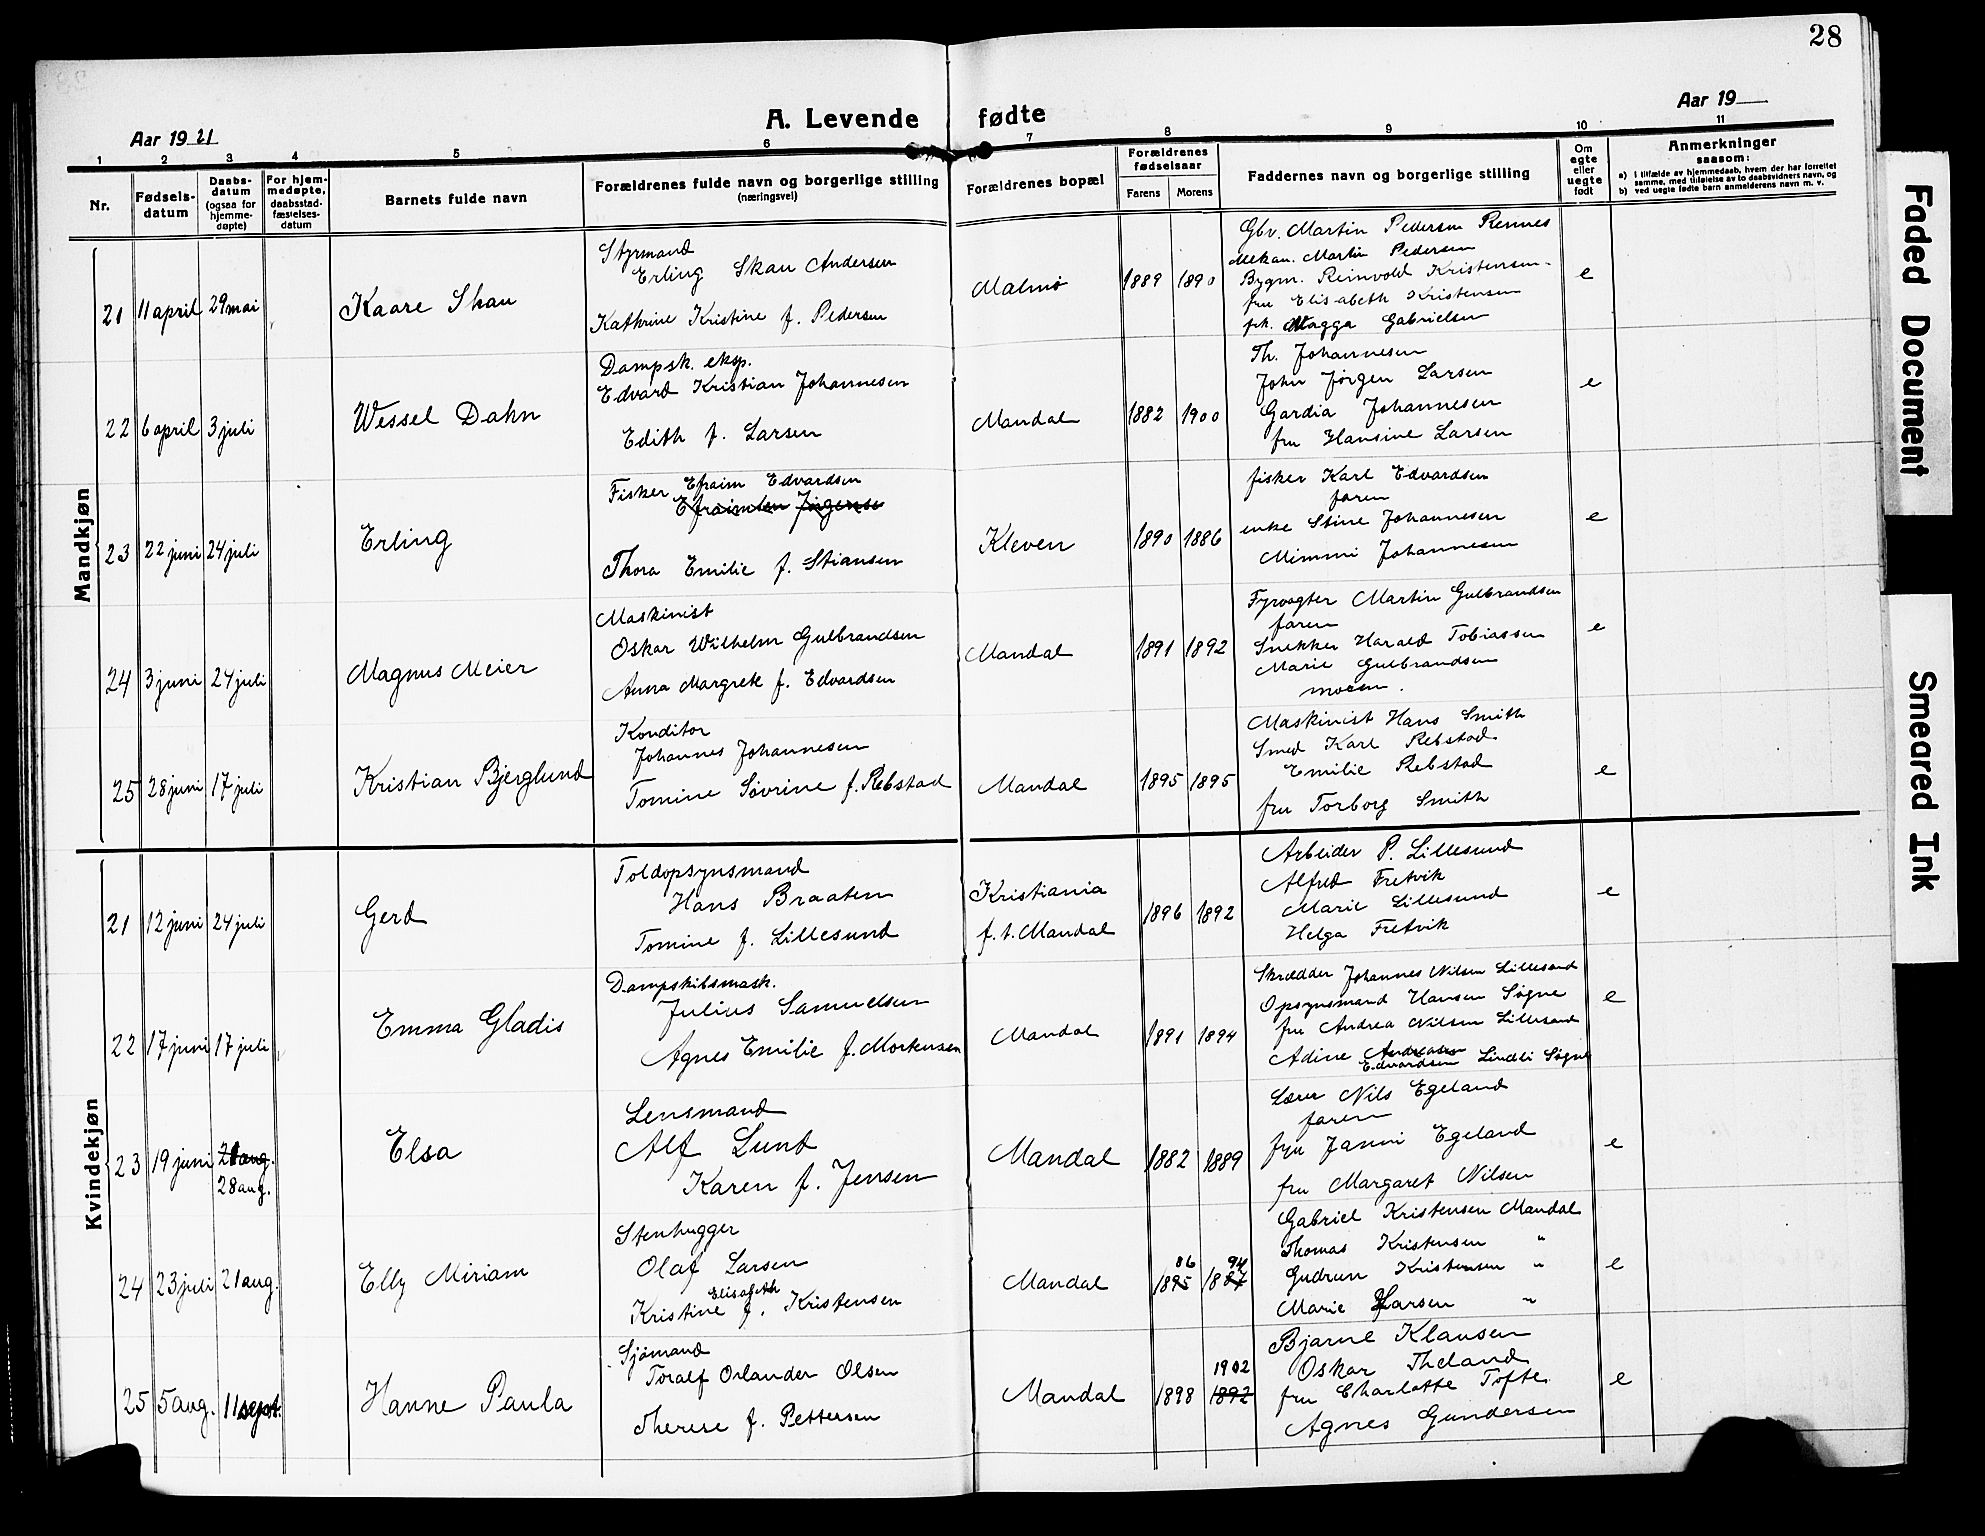 28
A. Levende fødte
Aar 1921
Aar 19
1 2 3 4 5 6 7 8 9 10 11
Nr.
Fødsels-
datum
Daabs-
datum
(ogsaa for
hjemme-
døpte)
For hjem-
medøpte,
daabsstad-
fæstelses-
datum
Barnets fulde navn
Forældrenes fulde navn og borgerlige stilling
(næringsvei)
Forældrenes bopæl
Forældrenes
fødselsaar
Farens Morens
Faddernes navn og borgerlige stilling
Om
egte
eller
uegte
født
Anmerkninger
saasom:
a) i tilfælde av hjemmedaab, hvem der har forrettet
samme, med tilføielse av to daabsvidners navn, og
b) ved uegte fødte barn anmelderens navn m. v.
Mandkjøn
21 11 april 29 mai Kaare Skau
Styrmand
Erling Skau Andersen
Kathrine Kristine f. Pedersen
Malmø 1889 1890
Gbr. Martin Pedersen Rennes
Mekan. Martin Pedersen
Bygm. Reinvold Kristensen
fru Elisabeth Kristensen
frk. Magga Gabrielsen
e
22 6 april 3 juli Wessel Dahn
Dampsk. eksp.
Edvard Kristian Johannesen
Edith f. Larsen
Mandal 1882 1900
Th. Johannesen
John Jørgen Larsen
Gardia Johannesen
fru Hansine Larsen
e
23 22 juni 24 juli Erling
Fisker Efraim Edvardsen
Efraimsen Jørgensen
Thora Emilie f. Stiansen
Kleven 1890 1886
fisker Karl Edvardsen
faren
enke Stine Johannesen
Mimmi Johannesen
e
24 3 juni 24 juli Magnus Meier
Maskinist
Oskar Wilhelm Gulbrandsen
Anna Margrete f. Edvardsen
Mandal 1891 1892
Fyrvogter Martin Gulbrandsen
faren
Snekker Harald Tobiassen
Marie Gulbrandsen
moren.
e
25 28 juni 17 juli Kristian Bjerglund
Konditor
Johannes Johannesen
Tomine Søvrine f. Rebstad
Mandal 1895 1895
Maskinist Hans Smith
Smed Karl Rebstad
Emilie Rebstad
fru Torborg Smith
e
Kvindekjøn
21 12 juni 24 juli Gerd
Toldopsynsmand
Hans Braaten
Tomine f. Lillesund
Kristiania
f. t. Mandal
1896 1892
Arbeider P. Lillesund
Alfred Fretvik
Marie Lillesund
Helga Fretvik
e
22 17 juni 17 juli Emma Gladis
Dampskibsmask.
Julius Samuelsen
Agnes Emilie f. Mortensen
Mandal 1891 1894
Skrædder Johannes Nilsen Lillesand
Opsynsmand Hansen Søgne
fru Andrea Nilsen Lillesand
Adine Andreasen
Edvardsen Lindli Søgne
e
23 19 juni 21 aug.
28 aug.
Elsa
Lensmand
Alf Lund
Karen f. Jensen
Mandal 1882 1889
Lærer Nils Egeland
faren
fru Janni Egeland
fru Margaret Nilsen
e
24 23 juli 21 aug. Elly Miriam
Stenhugger
Olaf Larsen
Elisabeth
Kristine f. Kristensen
Mandal
86 94
1895 1887
Gabriel Kristensen Mandal
Thomas Kristensen "
Gudrun Kristensen "
Marie Larsen "
e
25 5 aug. 11 sept. Hanne Paula
Sjömand
Toralf Orlander Olsen
Therese f. Pettersen
Mandal 1898
1902
1892
Bjarne Klausen
Oskar Theland
fru Charlotte Tofte
Agnes Gundersen
e
Faded Document
Smeared Ink